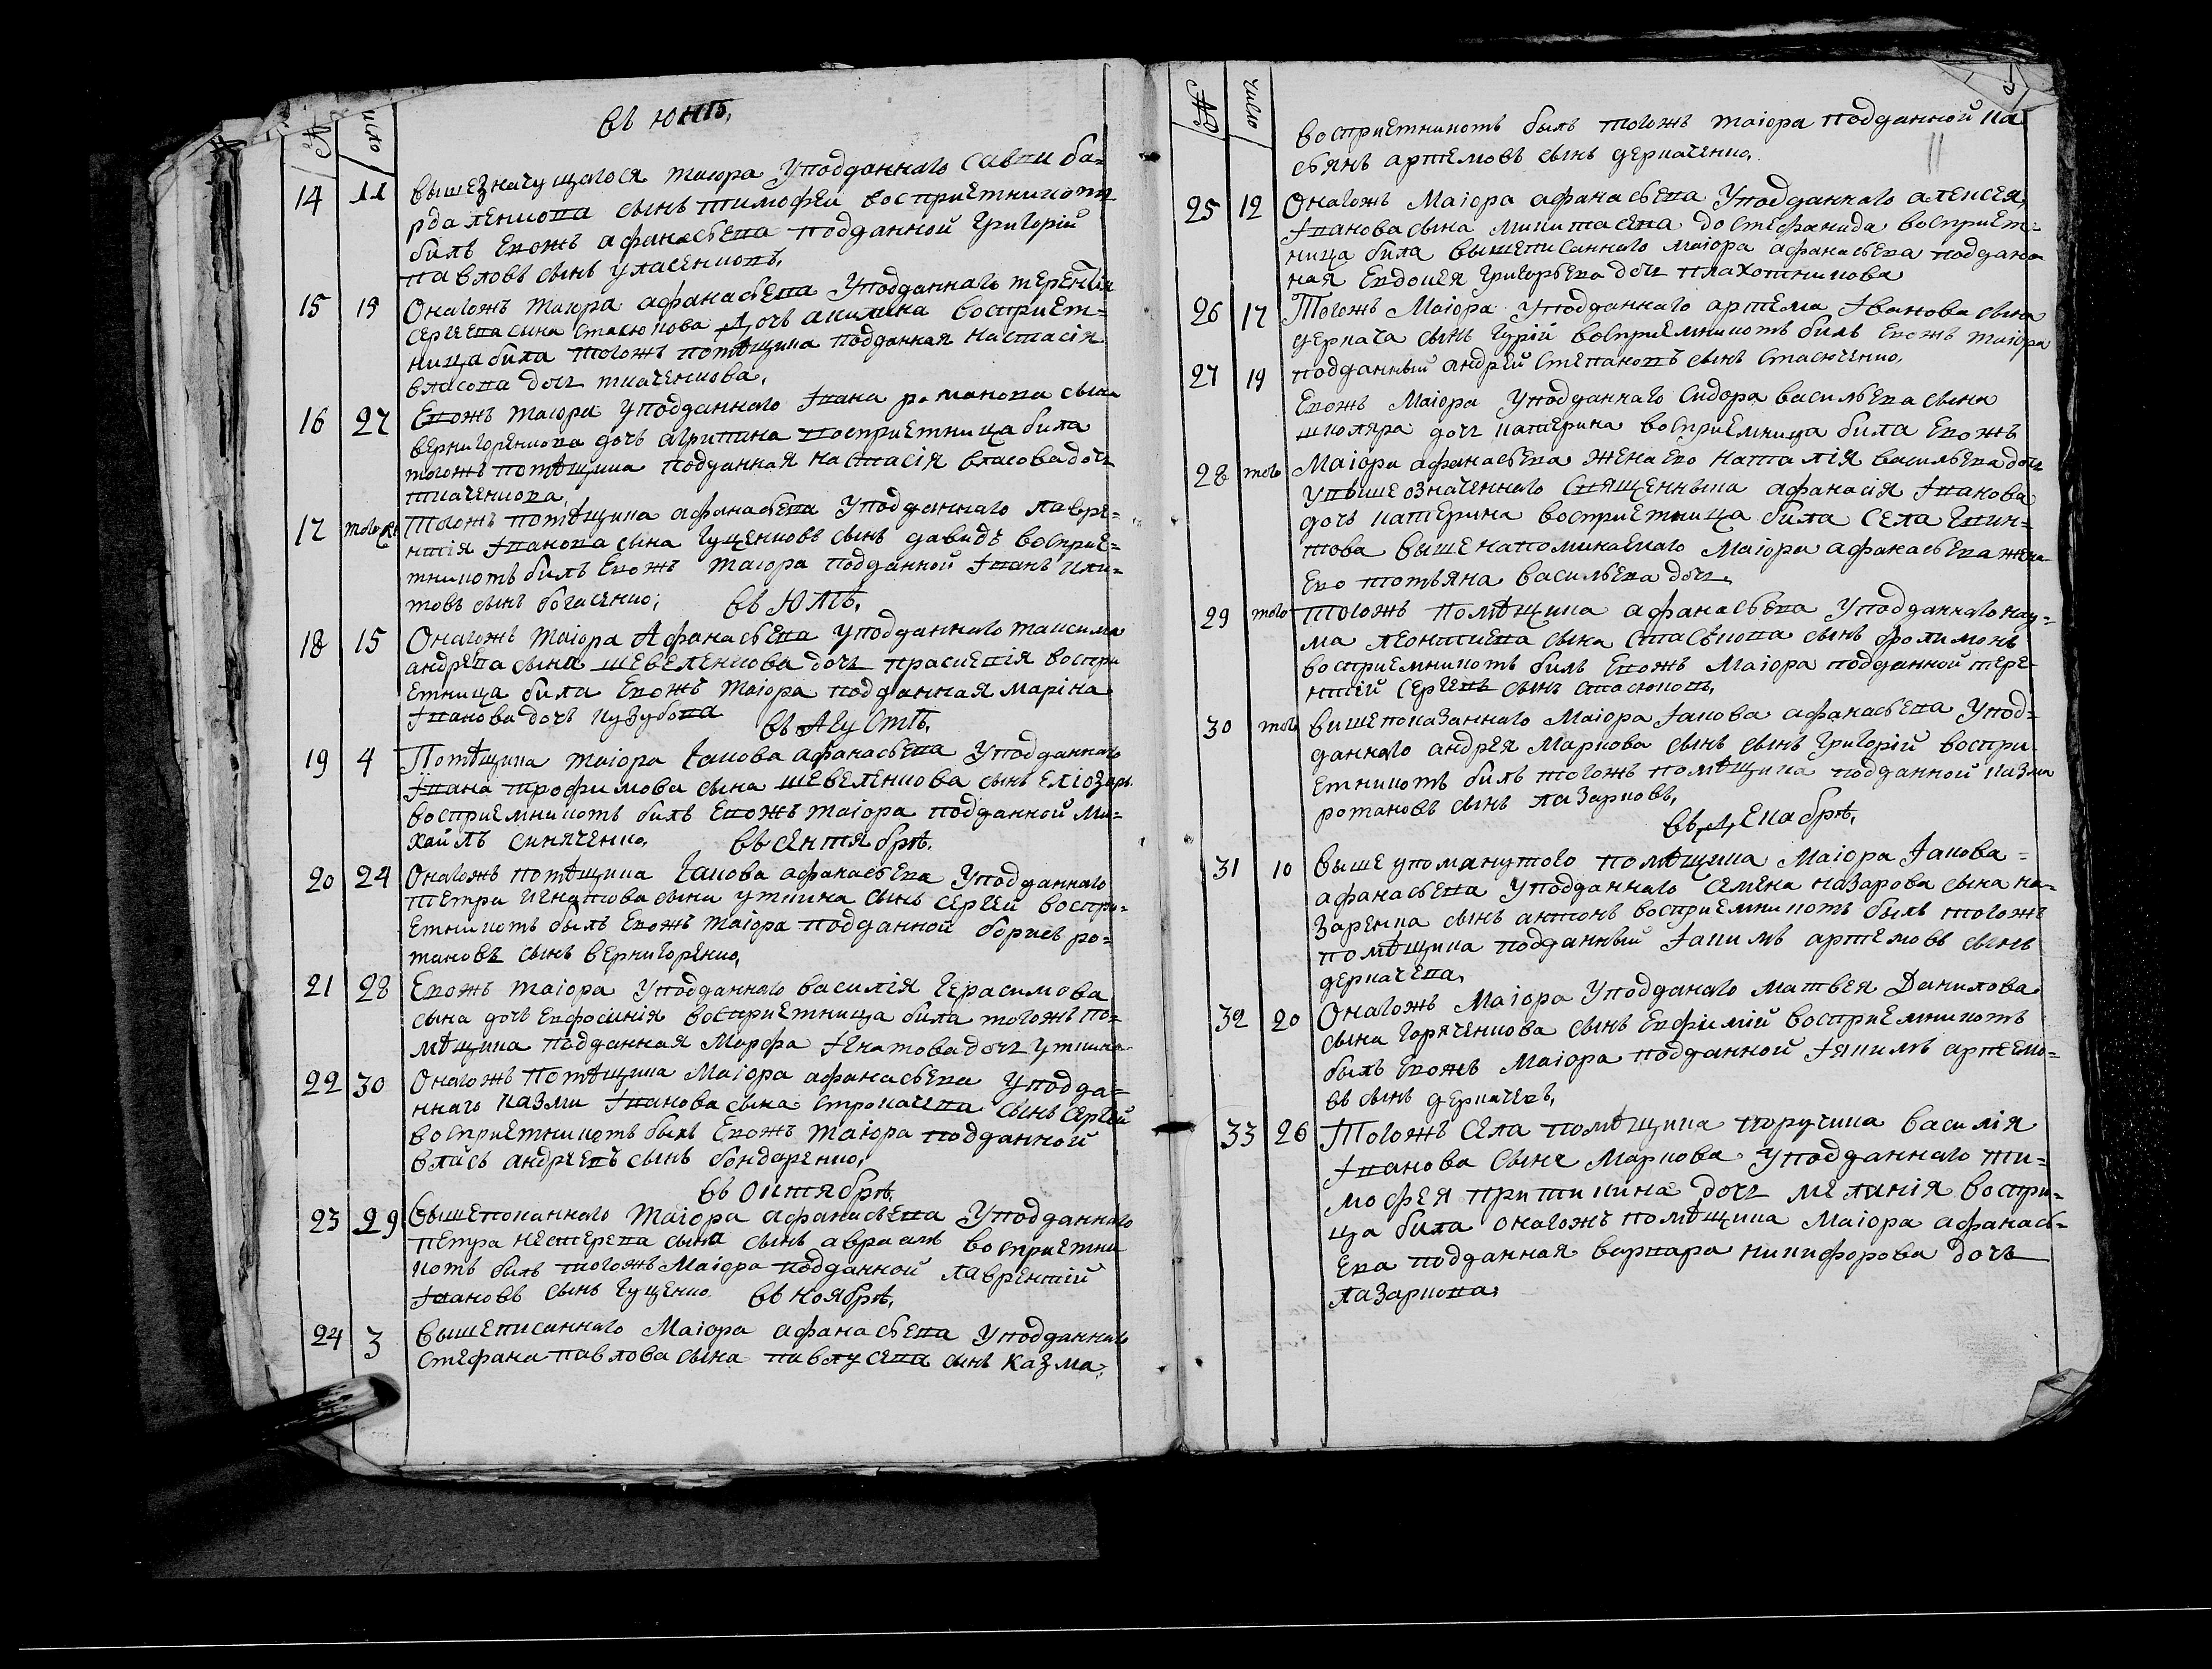 № число
въ юнѣ,
14 11 вышезначущагося маіора Уподданнаго савки ба=
рдаленкова сынъ тимофеи восприемникомъ
билъ Евожъ афанасьева подданной Григорій
павловъ сынъ уласенковъ,
15 19 Онагожъ маіора афанасьева Уподданнаго терентія
сергеева сина стасюкова дочь акилина восприем=
ница била тогожъ помѣщика подданная настасія
власова дочь ткаченкова,
16 27 Евожъ маіора уподданнаго Iвана романова сына
вернигоренкова дочь агрипина восприемница била
тогожъ помѣщика подданная настасія власова дочь
ткаченкова,
17 того Тогожъ помѣщика афанасьева Уподданнаго лавре=
нтія Iванова сина гущенковъ сынъ давидъ восприе=
мникомъ билъ Евожъ маіора подданной Iванъ
товъ сынъ богасенко;
въ Юлѣ,
18 15 Онагожъ маіора Афанасьева уподданнаго максима
андрева сына шевеленкова дочь праскевія воспри
емница била Евожъ маіора подданная маріна
Iванова дочь кузубова
въ Августѣ,
19 4 Помѣщика маіора Iакова афанасьева Уподданнаго
Iвана трофимова сина шевеленкова сынъ еліозаръ
восприемникомъ билъ Евожъ маіора подданной ми=
хаилъ синяченко,
въ сентябрѣ,
20 24 Онагожъ помѣщика Iакова афанасьева Уподданнаго
петра игнатова сына уткина сынъ сергеи воспри=
емникомъ былъ Евожъ маіора подданной борисъ ро=
мановъ сынъ вернигоренко,
21 28 Евожъ маіора Уподданнаго василія герасимова
сына дочь евфосинія восприемница била тогожъ по=
мѣщика подданная Марфа Iгнатова дочь уткина
22 30 Онагожъ помѣщика Маіора афанасьева Упода=
ннаго казми Iванова сына строкачева сынъ сергей
восприемникомъ былъ Евожъ маіора подданной
власъ андреевъ сынъ бондаренко,
въ Октябрѣ,
23 29 Вышепоканнаго Маіора афанасьева Уподданнаго
петра нестерева сына сынъ авраамъ восприемни
комъ былъ тогожъ Маіора подданной лаврентій
Iвановъ сынъ гущенко
въ ноябрѣ,
24 3 Вышеписаннаго Маіора афанасьева Уподданнаго
стефана павлова сына павлусева сынъ Казма,
№ число
восприемникомъ былъ тогожъ маіора подданной ка
сьянъ артемовъ сынъ деркаченко,
25 12 Онагожъ Маіора афанасьева Уподданнаго алексея
Iванова сына микитасева до стефанида восприем=
ница била вышеписаннаго маіора афанасьева поддана
ная Евдокея григорьева дочь плахотникова
26 17 Тогожъ Маіора Уподданнаго артема Iванова сына
деркача сынъ гурій восприемникомъ билъ Евожъ маіора
подданный андрей степановъ сынъ стасюченко,
27 19 Евожъ Маіора Уподданнаго Сидора васильева сына
школяра дочь катерина восприемница била Евожъ
Маіора афанасьева жена ево наталія васильева дочь
28 того увышеозначеннаго священника афанасія Iванова
дочь катерина восприемница била села
това вышенапоминаемаго Маіора афанасьева жена
ево тотьяна васильева дочь,
29 того Тогожъ помѣщика афанасьева Уподданнаго нау=
ма леонтиева сына стасѣкова сынъ филимонъ
восприемникомъ билъ Евожъ Маіора подданной тере=
нтій сергеевъ сынъ стасюковъ,
30 того вишепоказаннаго Маіора Iакова афанасьева Упод=
даннаго андрея Маркова сынъ сынъ григорій воспри=
емникомъ билъ тогожъ помѣщика подданной казма
романовъ сынъ лазарковъ,
въ декабрѣ,
31 10 Вышеупоманутого помѣщика Маіора Iакова=
афанасьева Уподданнаго семена назарова сына на=
заренка сынъ антонъ восприемникомъ былъ тогожъ
помѣщика подданный Iакимъ артемовъ сынъ
деркачева,
32 20 Онагожъ Маіора Уподданаго матвея Данилова
сына горяченкова сынъ Евфимій восприемникомъ
былъ Евожъ Маіора подданной Iякимъ артемо=
въ сынъ деркачевъ,
33 26 Тогожъ села помѣщика поручика василія
Iванова сына Маркова Уподданнаго ти=
мофея притикина дочь меланія воспри=
ца била онагожъ помѣщика Маіора афанась=
ева подданная варвара никифорова дочь
лазаркова,